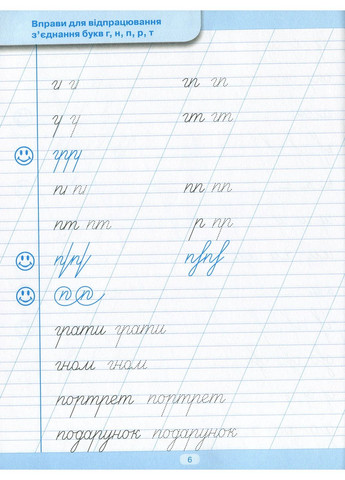 Вправи для відпрацювання
з'єднання букв г, н, п, р, т
гп гп
гт гт
пп пп
пт пт
р пр
п п
грати грати
гном гном
портрет портрет
подарунок подарунок
6